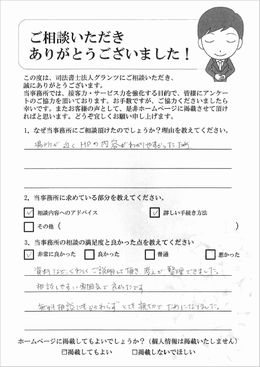 ご相談いただき
ありがとうございました！
この度は、司法書士法人グランツにご相談いただき、
誠にありがとうございます。
当事務所では、接客力・サービス力を強化する目的で、皆様にアンケー
トのご協力を頂いております。お手数ですが、ご協力くださいましたら
幸いです。またお客様の声として、是非ホームページに掲載させて頂け
ればと思います。どうぞ宜しくお願い申し上げます。
1、なぜ当事務所にご相談頂けたのでしょうか？理由を教えてください。
場所が近く HPの内容がわかりやすかったため
2、当事務所に求めている部分を教えてください。
☑相談内容へのアドバイス ☑詳しい手続き方法
□その他（ ）
3、当事務所の相談の満足度と良かった点を教えてください
☑非常に良かった □良かった □普通 □悪かった
資料
ご説明して頂き
整理できました。
相談しやすい雰囲気で良かったです
無料相談にもかかわらず とても親切で ためになりました。
ホームページに掲載してもよいでしょうか？（個人情報は掲載いたしません）
□掲載してもよい □掲載しないでほしい